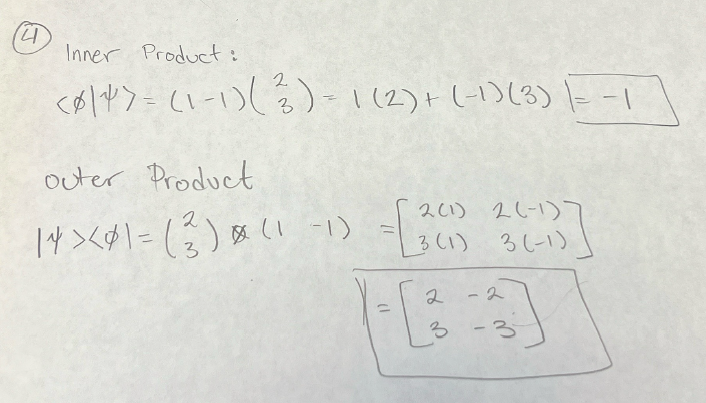 ④ Inner Product:
<ϕ|ψ> = (1 -1)(2 3) = 1(2) + (-1)(3) = -1
outer Product
|ψ><ϕ| = (2 3) ⊗ (1 -1) = [2(1) 2(-1)
3(1) 3(-1)]
= [2 -2
3 -3]